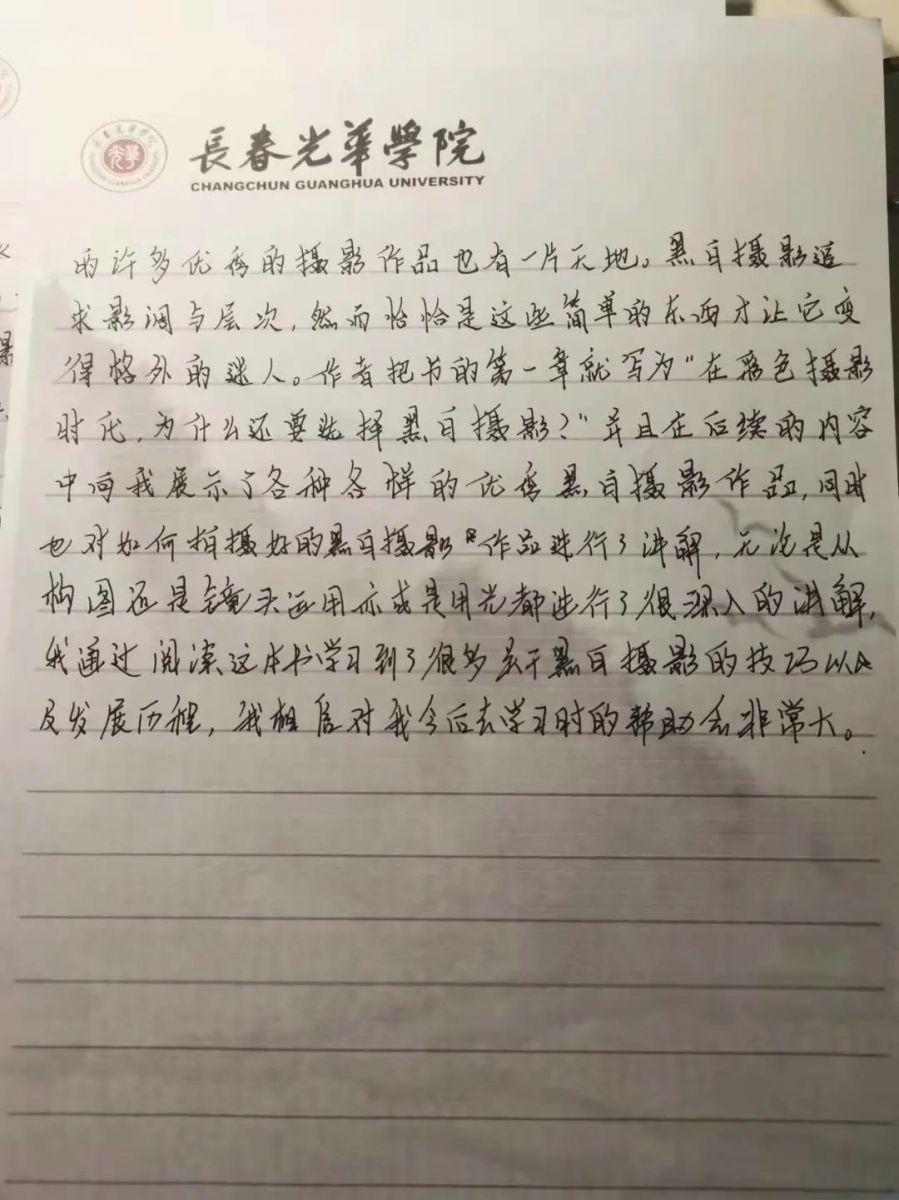 長春光華學院
CHANGCHUN GUANGHUA UNIVERSITY
的许多优秀的摄影作品也有一片天地。黑白摄影追
求影调与层次，然而恰恰是这些简单的东西才让它变
得格外的迷人。作者把书的第一章就写为“在彩色摄影
时代，为什么还要选择黑白摄影？”并且在后续的内容
中向我展示了各种各样的优秀黑白摄影作品，同时
也对如何拍摄好的黑白摄影作品进行了讲解，无论是从
构图还是镜头运用亦或是用光都进行了很深入的讲解，
我通过阅读这本书学习到了很多关于黑白摄影的技巧以
及发展历程，我相信对我今后去学习时的帮助会非常大。